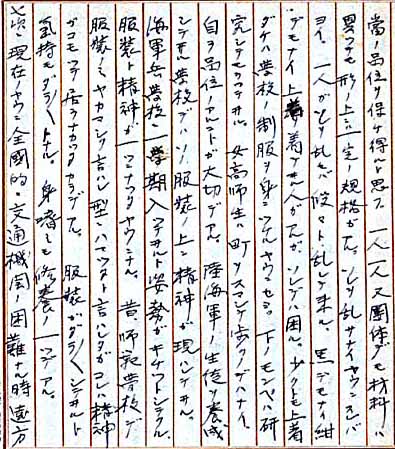 當ノ品位ヲ保ケ得ルト思フ 一人一人又團体デモ材料ハ
異ツテモ形ノ上ニ一定ノ規格ガアル。ソレヲ乱サナイヤウニスレバ
ヨイ 一人ガソレヲ乱スト 段々ト乱レテ來ル。黒デモナイ紺
デモナイ上着ノ人ガアルガ ソレデハ困ル。少クトモ上着
ダケハ學校ノ制服ヲ身ニツケルヤウニセヨ。下ノモンペハ研
究シテモラッテヰル。女高師生ハ町ヲスマシテ歩クノデハナイ、
自ラ品位ノアルコトガ大切デアル。陸海軍ノ生徒ヲ養成
シテヰル學校デハソノ服装ノ上ニ精神ガ現ハレテヰル。
海軍兵學校ニ一學期入ッテヰルト姿勢ガキチントシテクル。
服装ト精神ガ一ツニナツタヤウデアル。昔師範學校デ
服装ノミヤカマシク言ハレ型ニハマツタト言ハレタガコレハ精神
ガコモッテ居ラナカッタカラデアル。服装ガダラ〱シテヰルト
氣持モダラ〱トナル。身嗜ミモ修養ノ一ツデアル。
次ニ現在ノヤウニ全國的ニ交通機関ノ困難ナル時遠方